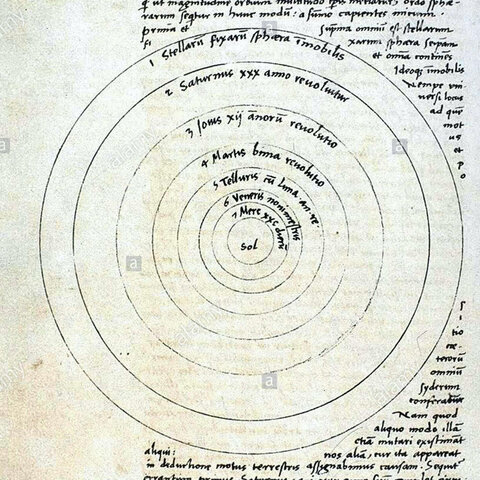 q ut magnitudine orbium multitudo ipsa metiatur, ordo sphæ=
rarum sequitur in hunc modũ: a summo capientes initium.
prima et suprema omniũ est stellarum
fixarum sphæra seipam
et omnia continens
Ideoq; ĩmobilis
Nempe uni
versi locus
ad quẽ
mot
us
et
p
o
1 Stellarũ fixarũ sphæra ĩmobilis
2 Saturnus xxx anno revolvitur
3 Jovis xij añorũ revolutio
4 Martis bima revolutio
5 Telluris cũ Luna an. re.
6 Veneris nonimestris
7 Merc xxc dierũ
Sol
tio
cæ-
terorũ
omniũ
syderum
conferatur
Nam quod
aliquo modo illã
etiã mutari existimãt
aliqui: nos aliã, cur ita appareat
in deductione motus terrestris assignabimus causam. Sequit